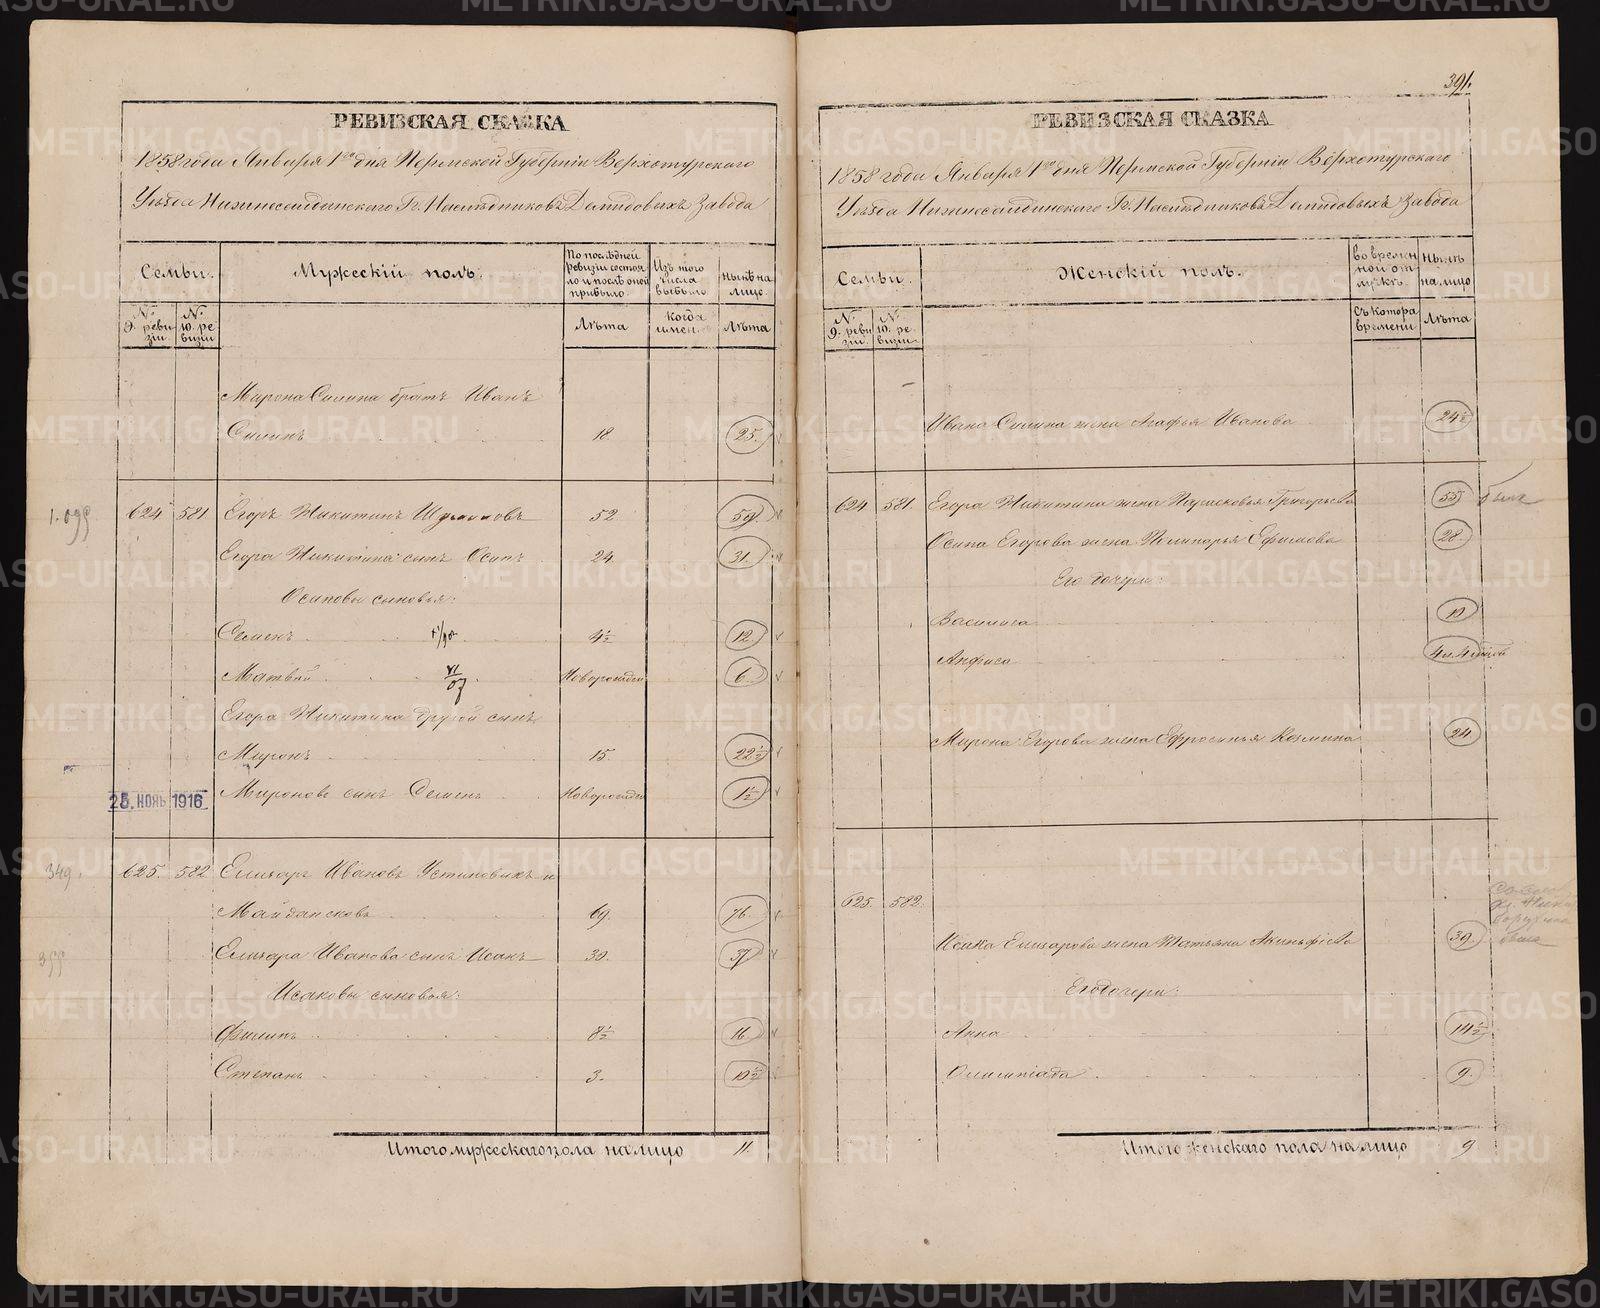 РЕВИЗСКАЯ СКАЗКА
1858 года Января 1го дня Пермской Губерніи Верхотурскаго
Уѣзда Нижнесалдинскаго Гг. Наслѣдниковъ Демидовыхъ Завода
Семьи.
Мужескій полъ.
По послѣдней ревизіи состояло и послѣ оной прибыло.
Изъ того числа выбыло
нынѣ на лицо.
№ 9. ревизіи
№ 10. ревизіи
Лѣта
Когда имен.
Лѣта
Мирона Силина братъ Иванъ
Силинъ 18 25.
1.099 624 581. Егоръ Никитинъ 52 59.
Егора Никитина сынъ Осипъ 24. 31.
Осиповы сыновья:
Семенъ 4½ 12.
Матвѣй VI/07 Новорожден 6.
Егора Никитина другой сынъ
Миронъ 15 22½
25. НОЯБ 1916 Мироновъ сынъ Семенъ Новорожден 1½
349. 625. 582 Елизаръ Ивановъ Устиновыхъ и
Майдансковъ 69. 76.
Елизара Иванова сынъ Исакъ 30. 37
Исаковы сыновья:
Филипъ 8½ 16.
Степанъ 3. 10½
Итого мужескаго пола на лицо 11.
391.
РЕВИЗСКАЯ СКАЗКА
1858 года Января 1го дня Пермской Губерніи Верхотурскаго
Уѣзда Нижнесалдинскаго Гг. Наслѣдниковъ Демидовыхъ Завода
Семьи.
Женскій полъ.
во временной отлучкѣ.
Нынѣ на лицо
№ 9. ревизіи
№ 10. ревизіи.
Съ котора времени
Лѣта
Ивана Силина жена Агафья Иванова 24½
624 581. Егора Никитина жена Парасковья Григорьева 55
Осипа Егорова жена Полинарья Ефимова 28
Его дочери:
Васинога 10
Анфиса 4
Мирона Егорова жена Ефросинья Козмина 24
625. 582.
Исака Елизарова жена Татьяна Акинфіева 39.
Его дочери:
Анна 14½
Олимпіада 9.
Итого женскаго пола на лицо 9
METRIKI.GASO-URAL.RU